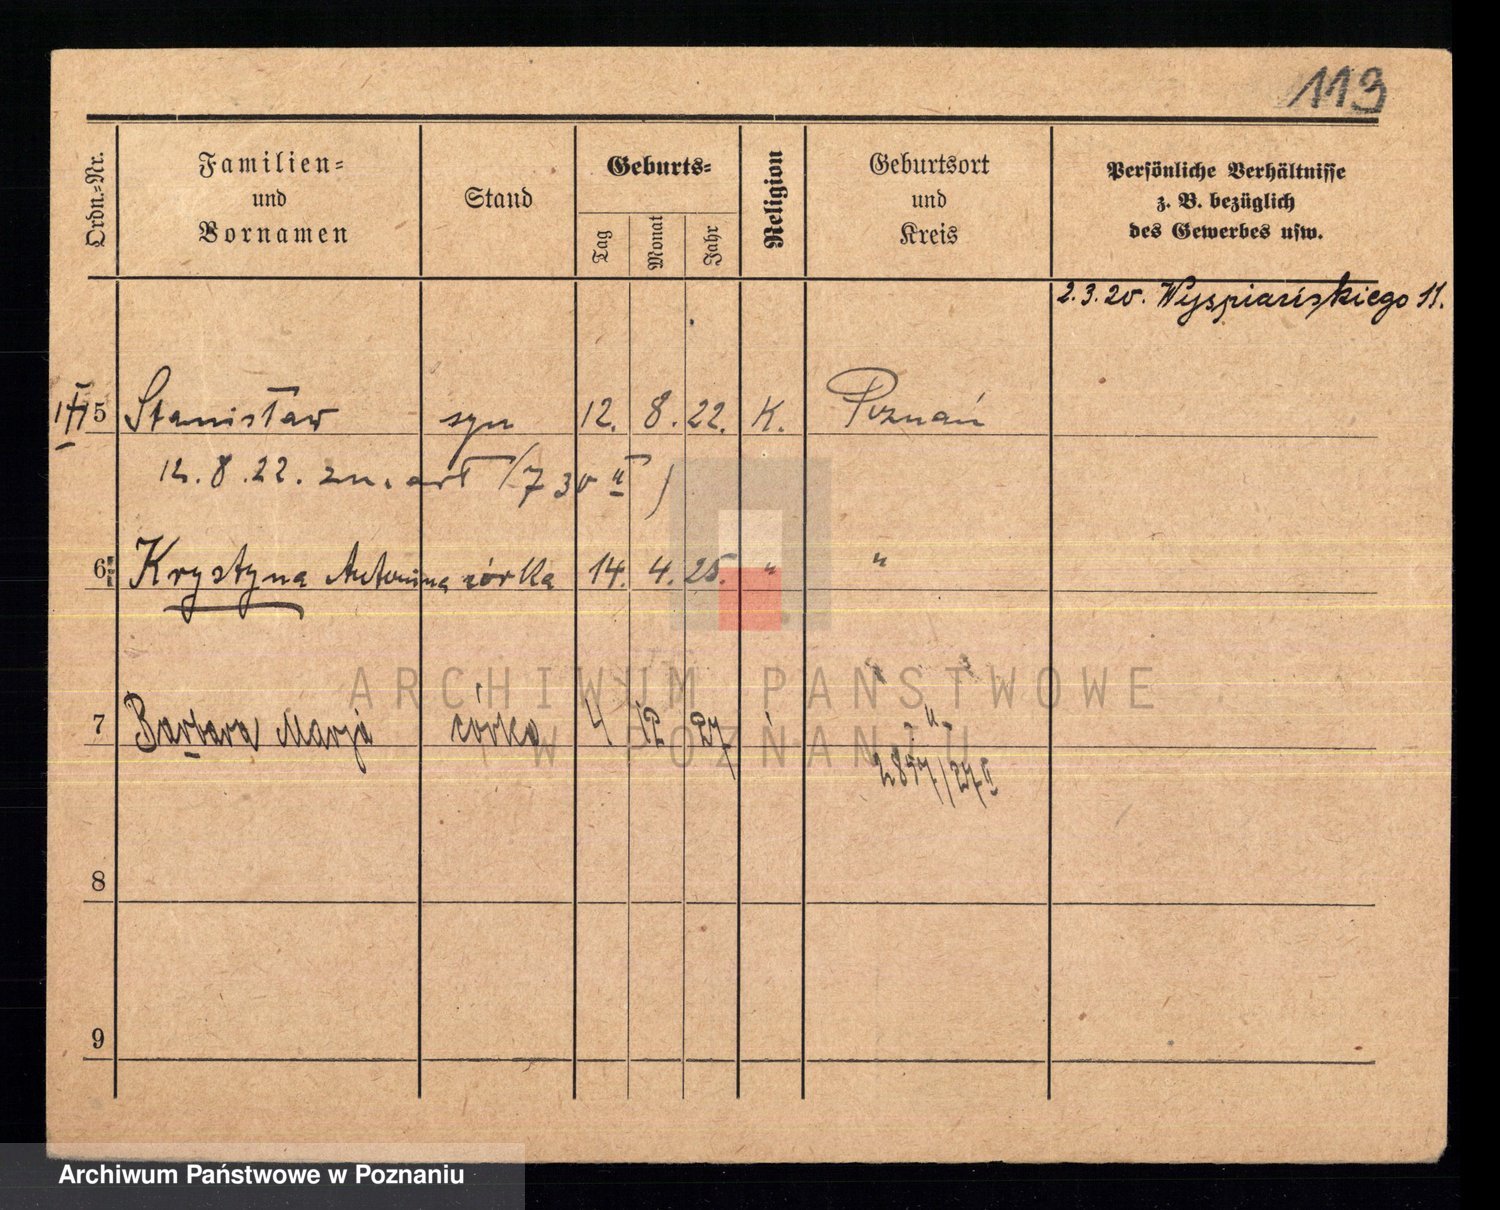 113
Ordn.=Nr.
Familien=
und
Vornamen
Stand
Geburts=
Tag
Monat
Jahr
Religion
Geburtsort
und
Kreis
Persönliche Verhältnisse
z. B. bezüglich
des Gewerbes usw.
2.3.20. Wyspiańskiego 11.
5 Stanisław syn 12. 8. 22. K. Poznań
12.8.22. zmarł (730 II)
6 Krystyna Antonina córka 14. 4. 25. " "
7 Barbara Marja córka 4 12 27 -"-
/27 II
8
9
ARCHIWUM PAŃSTWOWE
W POZNANIU
Archiwum Państwowe w Poznaniu